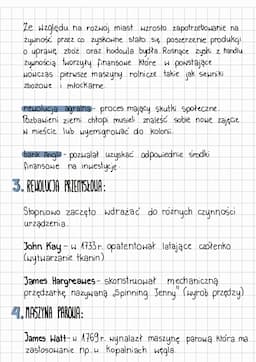 Ze względu na rozwój miast wzrosło zapotrzebowanie na
żywność przez co zyskowne stało się poszerzenie produkcji
o uprawę zbóż oraz hodowla bydła. Rosnące zyski z handlu
żywnością tworzyły finansowe które w powstające
wówczas pierwsze maszyny rolnicze takie jak siewniki
zbożowe i młockarnie.
rewolucja agrarna - proces mający skutki społeczne.
Pozbawieni ziemi chłopi musieli znaleść sobie nowe zajęcie
w mieście lub wyemigrować do kolonii.
bank Anglii - pozwalał uzyskać odpowiednie środki
finansowe na inwestycje.
3. REWOLUCJA PRZEMYSŁOWA:
Stopniowo zaczęto wdrażać do różnych czynności
urządzenia.
John Kay - w 1733 r. opatentował latające czółenko
(wytwarzanie tkanin)
James Hargreawes - skonstruował mechaniczną
przędzarkę nazywaną „Spinning Jenny" (wyrób przędzy)
4. MASZYNA PAROWA:
James Watt - w 1769 r. wynalazł maszynę parową która ma
zastosowanie np. w kopalniach węgla.